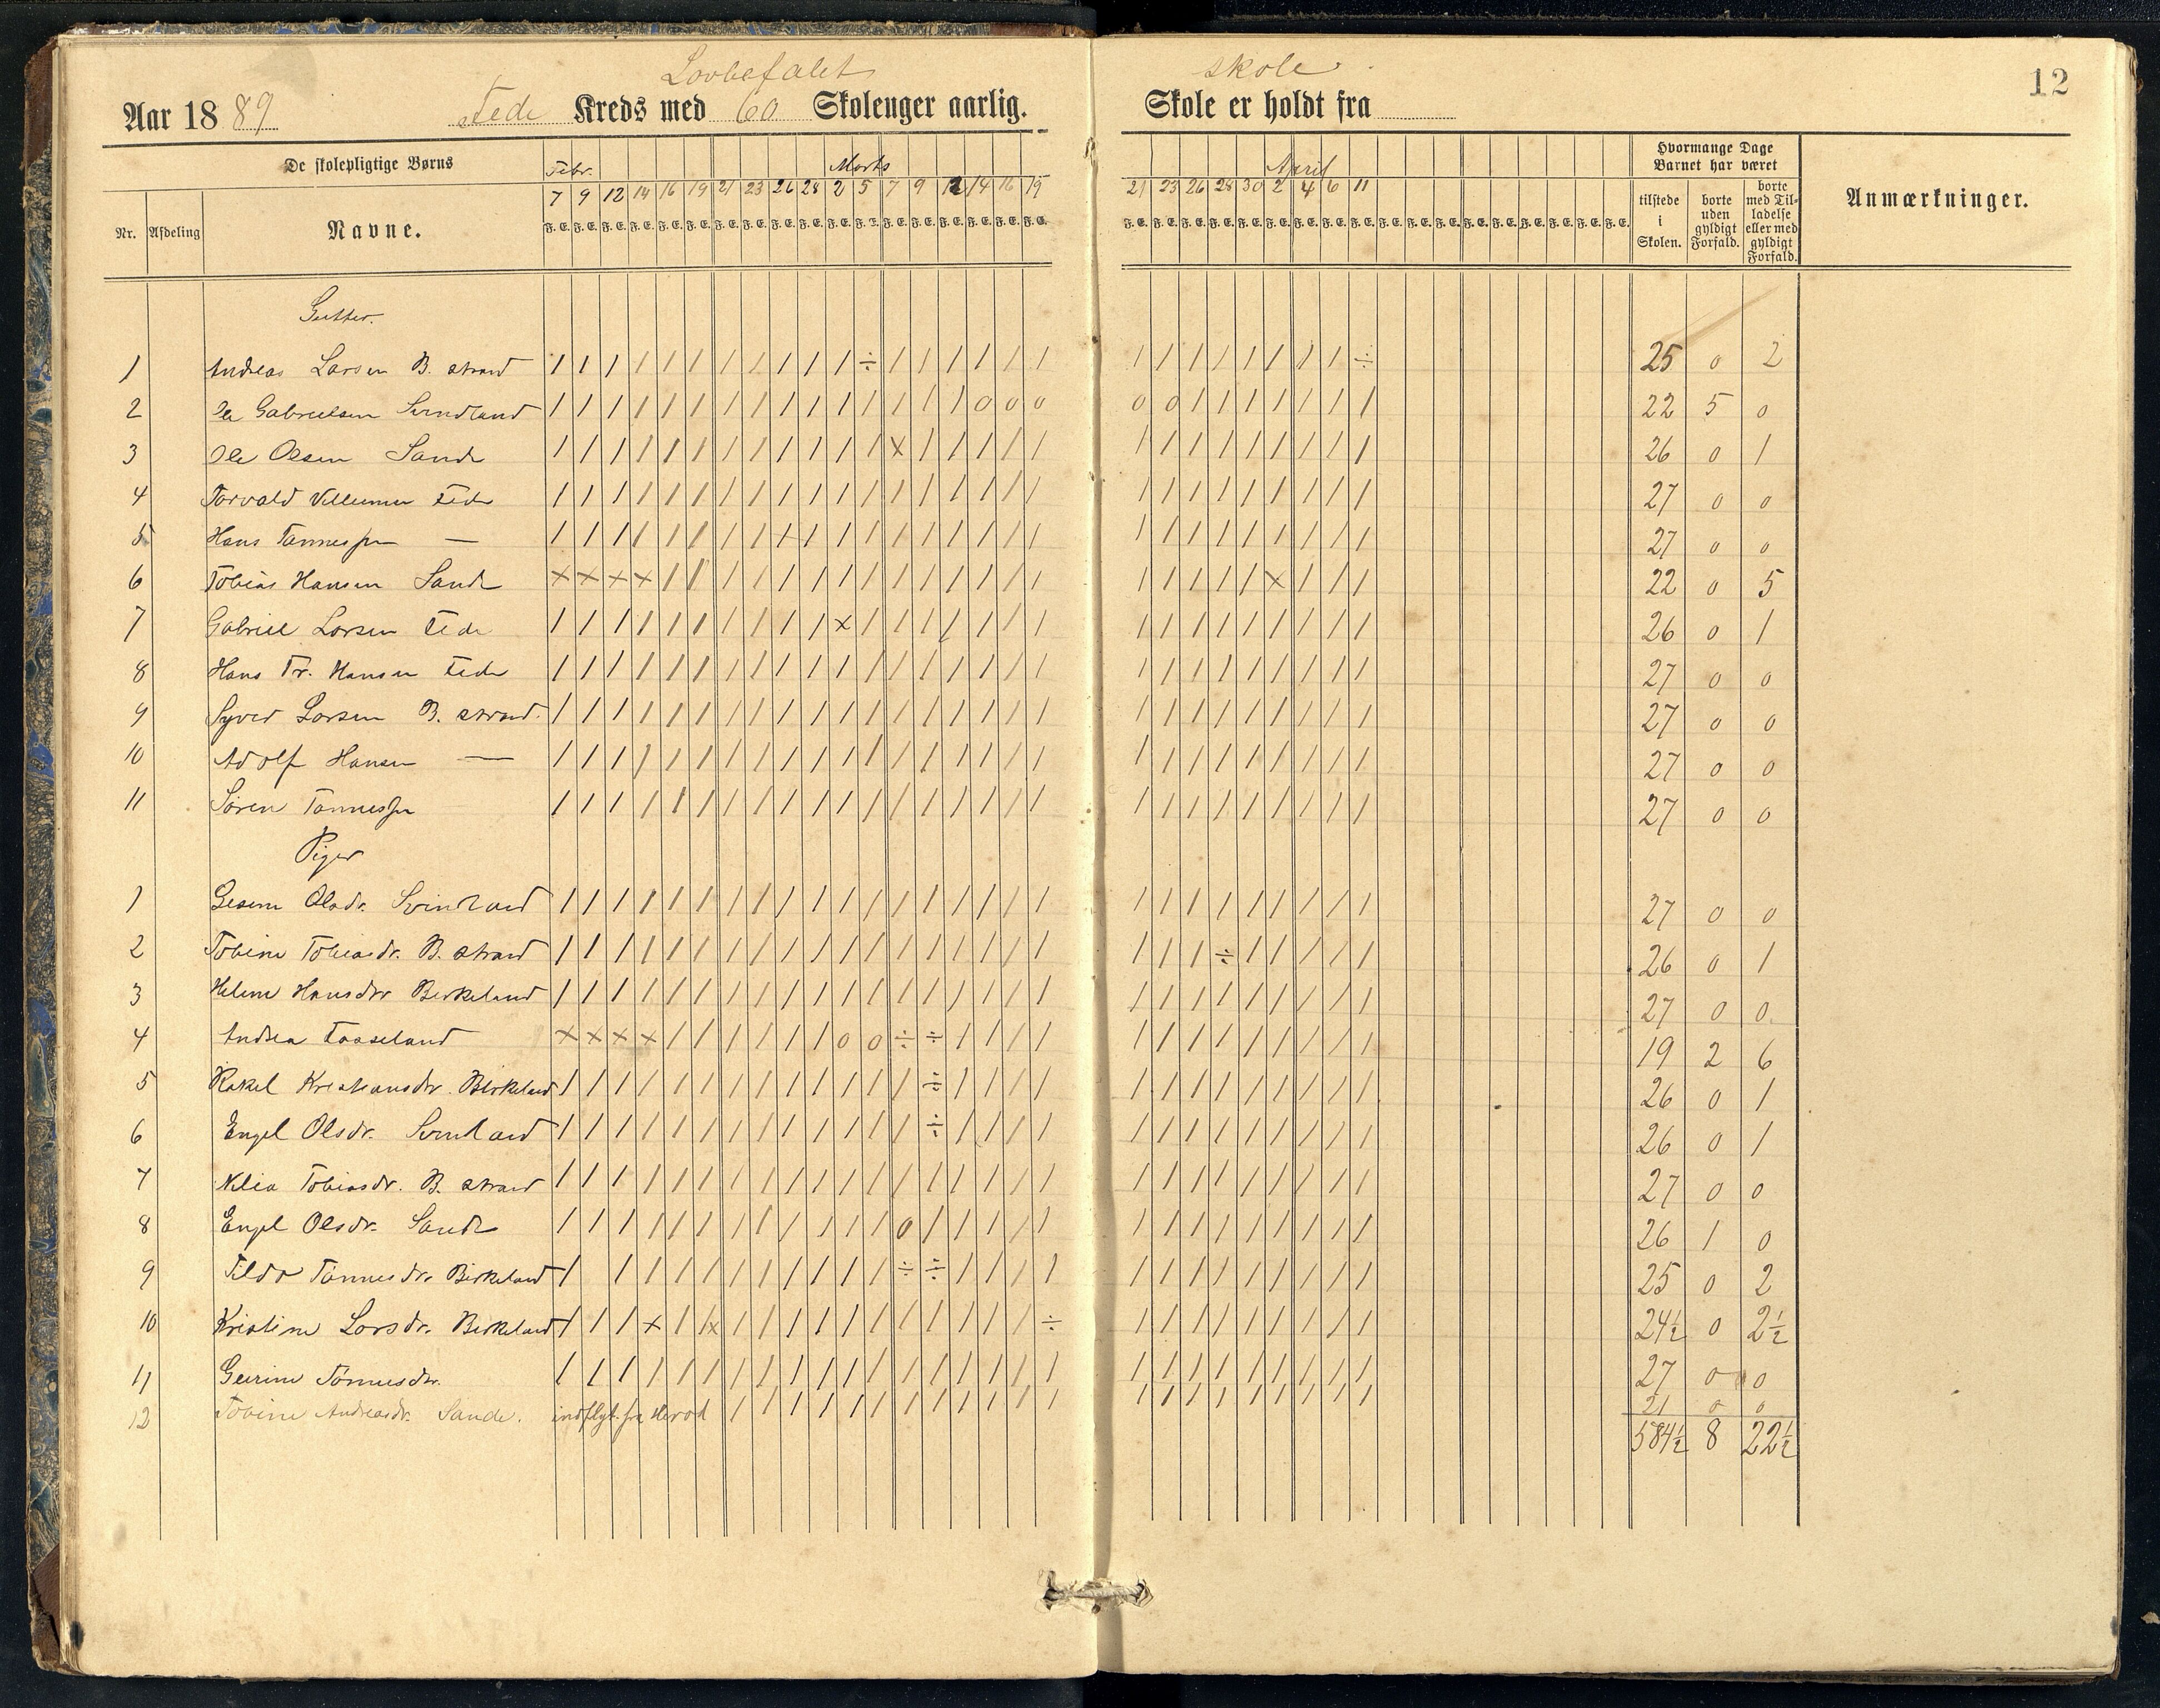 Lovbefalet skole
12
Aar 1889 Fede Kreds med 60 Skolenger aarlig. Skole er holdt fra
De skolepligtige Børns
Nr. Afdeling Navne.
Febr. Marts April
7 9 12 14 16 19 21 23 26 28 2 5 7 9 12 14 16 19 21 23 26 28 30 2 4 6 11
F. E. F. E. F. E. F. E. F. E. F. E. F. E. F. E. F. E. F. E. F. E. F. E. F. E. F. E. F. E. F. E. F. E. F. E. F. E. F. E. F. E. F. E. F. E. F. E. F. E. F. E. F. E. F. E. F. E. F. E. F. E. F. E. F. E. F. E. F. E. F. E.
Hvormange Dage Barnet har været
tilstede i Skolen.
borte uden gyldigt Forfald.
borte med Til-ladelse eller med gyldigt Forfald.
Anmærkninger.
Gutter.
1 Andreas Larsen B. strand / / / / / / / / / / / ÷ / / / / / / / / / / / / / / ÷ 25 0 2
2 Ole Gabrielsen Svindland / / / / / / / / / / / / / / / 0 0 0 0 0 / / / / / / / 22 5 0
3 Ole Olsen Sande / / / / / / / / / / / / x / / / / / / / / / / / / / / 26 0 1
4 Torvald Villumsen Fede / / / / / / / / / / / / / / / / / / / / / / / / / / / 27 0 0
5 Hans Tønnessen — / / / / / / / / / / / / / / / / / / / / / / / / / / / 27 0 0
6 Tobias Hansen Sande x x x x / / / / / / / / / / / / / / / / / / / x / / / 22 0 5
7 Gabriel Larsen Fede / / / / / / / / / / x / / / / / / / / / / / / / / / / 26 0 1
8 Hans Tr. Hansen Fede / / / / / / / / / / / / / / / / / / / / / / / / / / / 27 0 0
9 Syver Larsen B. strand. / / / / / / / / / / / / / / / / / / / / / / / / / / / 27 0 0
10 Adolf Hansen — / / / / / / / / / / / / / / / / / / / / / / / / / / / 27 0 0
11 Søren Tønnessen / / / / / / / / / / / / / / / / / / / / / / / / / / / 27 0 0
Piger
1 Gesine Olsdr. Svindland / / / / / / / / / / / / / / / / / / / / / / / / / / / 27 0 0
2 Tobine Tobiasdr. B. strand / / / / / / / / / / / / / / / / / / / / / ÷ / / / / / 26 0 1
3 Helene Hansdtr Birkeland / / / / / / / / / / / / / / / / / / / / / / / / / / / 27 0 0.
4 Andrea Faaseland x x x x / / / / / / 0 0 ÷ ÷ / / / / / / / / / / / / / 19 2 6
5 Rakel Kristiansdtr. Birkeland / / / / / / / / / / / / / ÷ / / / / / / / / / / / / / 26 0 1
6 Engel Olsdr. Svindland / / / / / / / / / / / / / ÷ / / / / / / / / / / / / / 26 0 1
7 Tobiasdr. B. strand / / / / / / / / / / / / / / / / / / / / / / / / / / / 27 0 0
8 Engel Olsdr. Sande / / / / / / / / / / / / 0 / / / / / / / / / / / / / / 26 1 0
9 Tønnesdr. Birkeland / / / / / / / / / / / ÷ ÷ / / / / / / / / / / / / / 25 0 2
10 Kristine Larsdr. Birkeland / / / x / x / / / / / / / / / / / ÷ / / / / / / / / / 24½ 0 2½
11 Geirine Tønnesdtr. / / / / / / / / / / / / / / / / / / / / / / / / / / / 27 0 0
12 Tobine Andreasdr. Sande. indflyt. fra / / / / / / / / / / / / / / / / / / / / / 21 0 0
584½ 8 22½